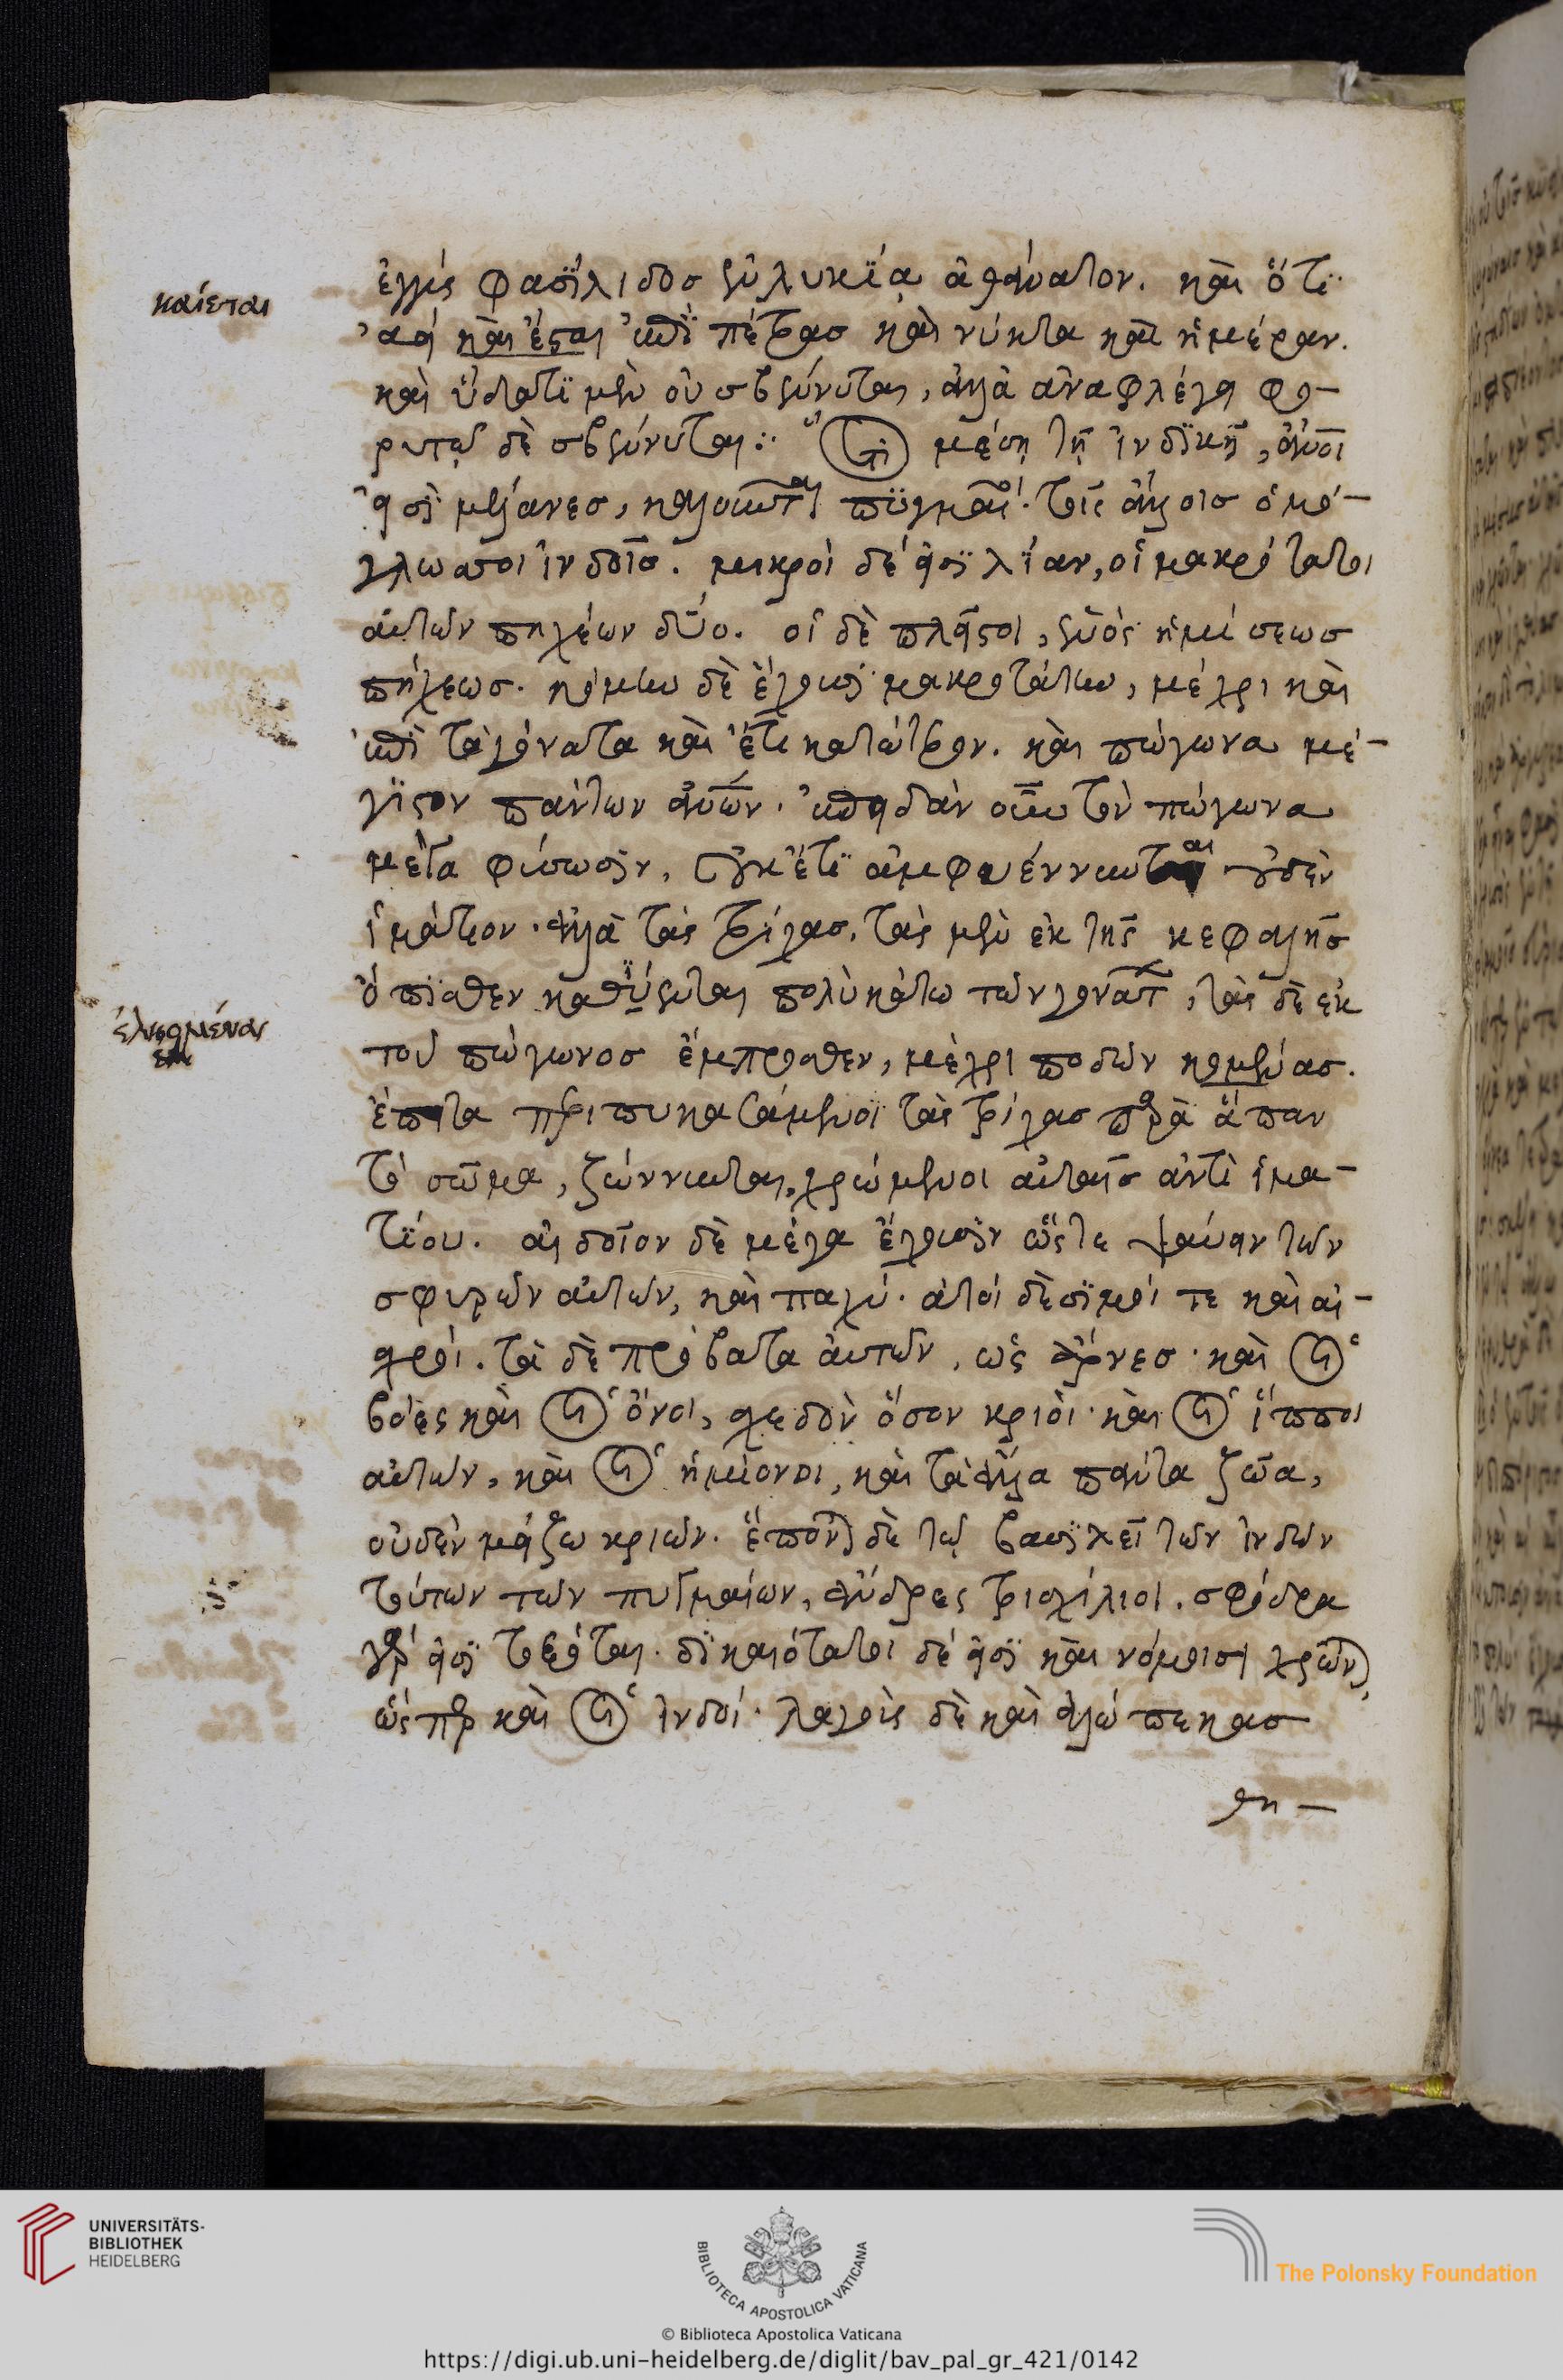 ἐγγὺς φασίλιδος ἐν λυκίᾳ ἀθάνατον. καὶ ὅτι
καίεται
ἀεὶ καὶ ἔσται ἐπὶ πέτρας καὶ νύκτα καὶ ἡμέραν.
καὶ ὕδατι μὲν οὐ σβέννυται, ἀλλὰ ἀναφλέγει φο-
ρυτῷ δὲ σβέννυται: ὅτι μέσῃ τῇ ἰνδικῇ, ἄνοι
εἰσὶ μέλανες, καλοῦνται πυγμαῖοι. τοῖς ἄλλοις ὁμό-
γλωσσοι ἰνδοῖς. μικροὶ δέ εἰσι λίαν, οἱ μακρότατοι
αὐτῶν πηχέων δύο. οἱ δὲ πλεῖστοι, ἑνὸς ἡμίσεως
πήχεως. κόμην δὲ ἔχουσι μακροτάτην, μέχρι καὶ
ἐπὶ τὰ γόνατα καὶ ἔτι κατώτερον. καὶ πώγωνα μέ-
γιστον πάντων ἀνων. ἐπειδὰν οὖν τὸν πώγωνα
μέγα φύσωσιν, οὐκέτι ἀμφιέννυνται οὐδὲν
ἱμάτιον. ἀλλὰ τὰς τρίχας, τὰς μὲν ἐκ τῆς κεφαλῆς
ὄπισθεν καθίενται πολὺ κάτω τῶν γονάτων, τὰς δὲ ἐκ
ἑλκομένας
τοῦ πώγωνος ἔμπροσθεν, μέχρι ποδῶν κομένας.
ἔπειτα περιπυκασάμενοι τὰς τρίχας περὶ ἅπαν
τὸ σῶμα, ζώννυνται, χρώμενοι αὐταῖς ἀντὶ ἱμα-
τίου. αἰδοῖον δὲ μέγα ἔχουσιν ὥστε ψαύειν τῶν
σφυρῶν αὐτῶν, καὶ παχύ. αὐτοὶ δὲ σιμοί τε καὶ αἰ-
σχροί. τὰ δὲ πρόβατα αὐτῶν, ὡς ἄρνες. καὶ οἱ
βόες καὶ οἱ ὄνοι, σχεδὸν ὅσον κριοί. καὶ οἱ ἵπποι
αὐτῶν, καὶ οἱ ἡμίονοι, καὶ τὰ ἄλλα πάντα ζῶα,
οὐδὲν μείζω κριῶν. ἕπονται δὲ τῷ βασιλεῖ τῶν ἰνδῶν
τούτων τῶν πυγμαίων, ἄνδρες τρισχίλιοι. σφόδρα
γάρ εἰσι τοξόται. δικαιότατοι δέ εἰσι καὶ νόμοισι χρῶνται
ὥσπερ καὶ οἱ ἰνδοί. λαγοὺς δὲ καὶ ἀλώπεκας
θη-
UNIVERSITÄTS-
BIBLIOTHEK
HEIDELBERG
BIBLIOTECA APOSTOLICA VATICANA
The Polonsky Foundation
© Biblioteca Apostolica Vaticana
https://digi.ub.uni-heidelberg.de/diglit/bav_pal_gr_421/0142